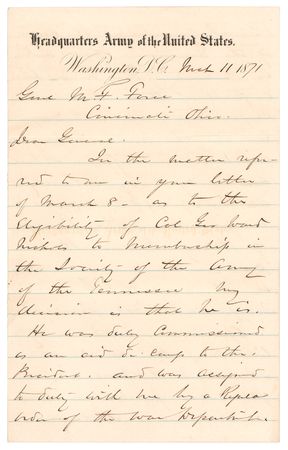 Headquarters Army of the United States.
Washington, D.C. Mch 11 1871
Genl M. F. Force
Cincinati Ohio.
Dear General.
In the matter refer-
red to me in your letter
of March 8 - as to the
Eligibility of Col Geo Ward
Nichols to Membership in
the Society of the Army
of the Tennessee my
decision is that he is.
He was duly Commissioned
as an aid de camp to the
President. and was assigned
to duty with me by a
order of the War Department.